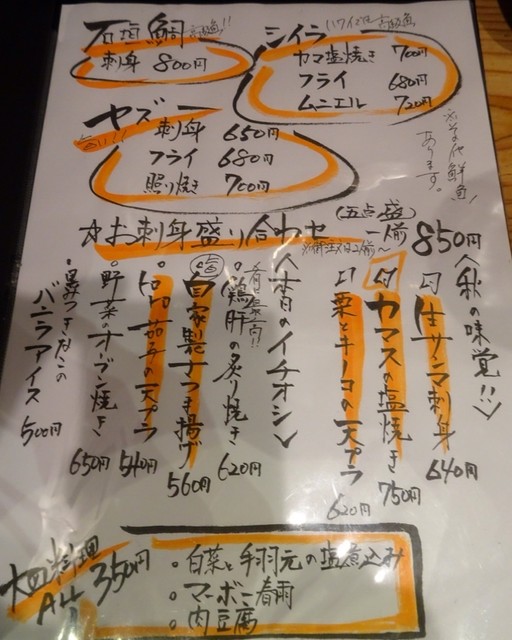 石垣鯛 高級魚!!
刺身 800円
シイラ ハワイで高級魚
カマ塩焼き 700円
フライ 680円
ムニエル 720円
ヤズー
刺身 650円
フライ 680円
照り焼き 700円
※その他鮮魚
あります。
☆お刺身盛り合わせ (五点盛) 一人前 850円
※御注文は二人前〜
〈秋の味覚!!〉
生サンマ刺身 640円
カマスの塩焼き 750円
栗とキノコの天プラ 620円
〈本日のイチオシ〉
鶏肝の炙り焼き 620円
自家製さつま揚げ 560円
トロトロ茄子の天プラ 540円
野菜のオーブン焼き 650円
黒みつきなこの
バニラアイス 500円
大皿料理
All 350円
・白菜と手羽元の塩煮込み
・マーボー春雨
・肉豆腐